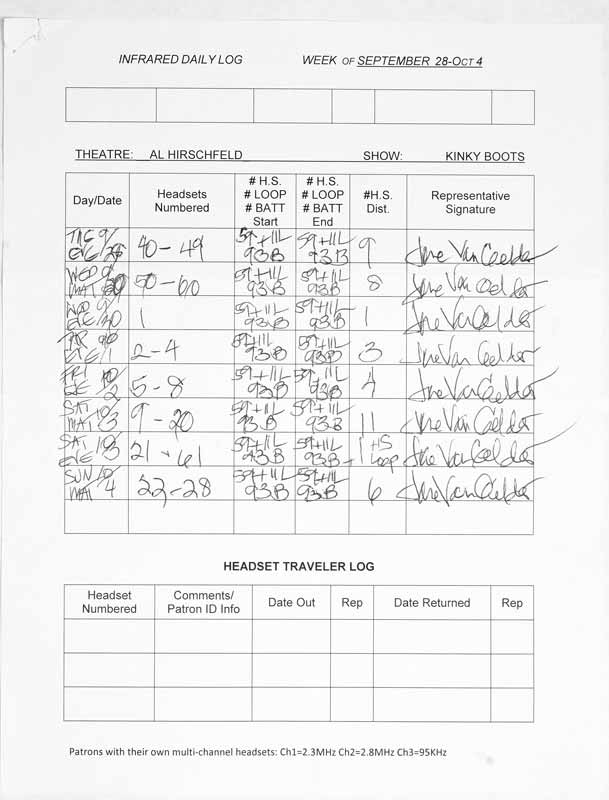 INFRARED DAILY LOG WEEK OF SEPTEMBER 28-OCT 4
THEATRE: AL HIRSCHFELD SHOW: KINKY BOOTS
Day/Date Headsets Numbered # H.S. # LOOP # BATT Start # H.S. # LOOP # BATT End #H.S. Dist. Representative Signature
TUE 9/ EVE/29 40-49 59+11L 93B 59+11L 93B 9 Jane Van Gelder
WED 9/ MAT 30 50-60 59+11L 93B 59+11L 93B 8 Jane Van Gelder
WED 9/ EVE/30 1 59+11L 93B 59+11L 93B 1 Jane Van Gelder
EVE/1 2-4 59+11L 93B 59+11L 93B 3 Jane Van Gelder
FRI 10/ EVE 2 5-8 59+11L 93B 59+11L 93B 4 Jane Van Gelder
SAT 10/ MAT 3 9-20 59+11L 93B 59+11L 93B 11 Jane Van Gelder
SAT 10/ EVE 3 21-61 59+11L 93B 59+11L 93B 1 HS 1 Loop Jane Van Gelder
SUN 10/ MAT 4 22-28 59+11L 93B 59+11L 93B 6 Jane Van Gelder
HEADSET TRAVELER LOG
Headset Numbered Comments/ Patron ID Info Date Out Rep Date Returned Rep
Patrons with their own multi-channel headsets: Ch1=2.3MHz Ch2=2.8MHz Ch3=95KHz